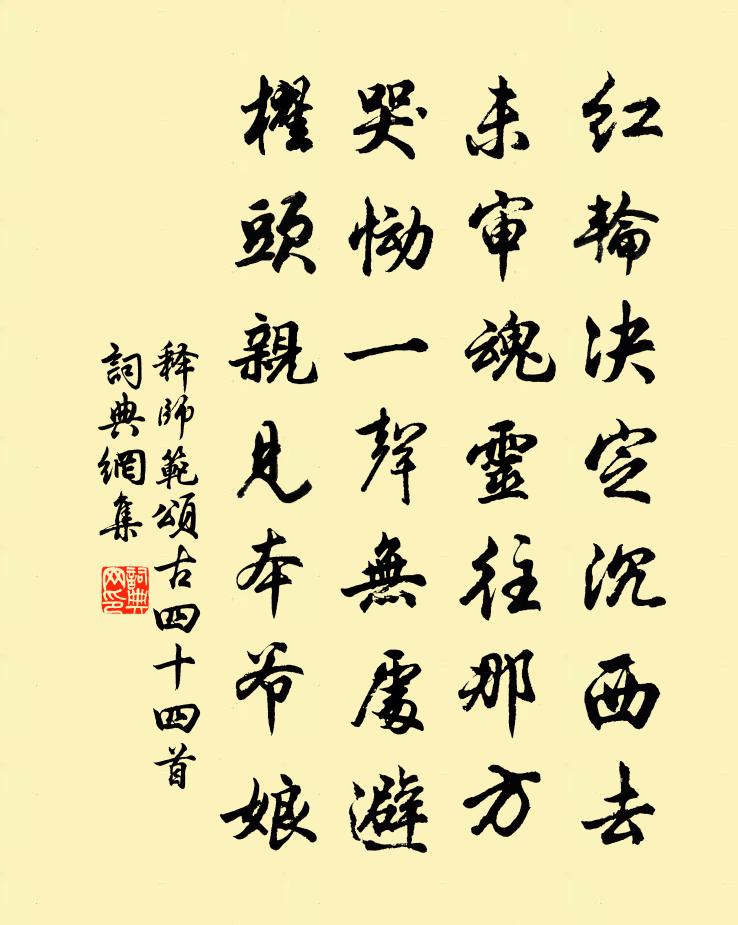 红輪決定沉西去
未审魂靈往那方
哭恸一聲無處避
櫂頭親見本爷娘
释師範頌古四十四首
詞典網集
詞典
网印